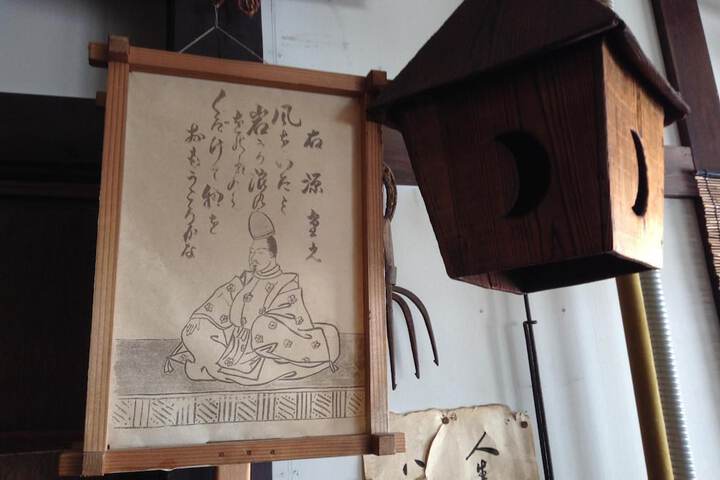 右 源重之
風をいたミ
岩うつ浪の
をのれのミ
くだけて物を
おもうころかな
人生
八